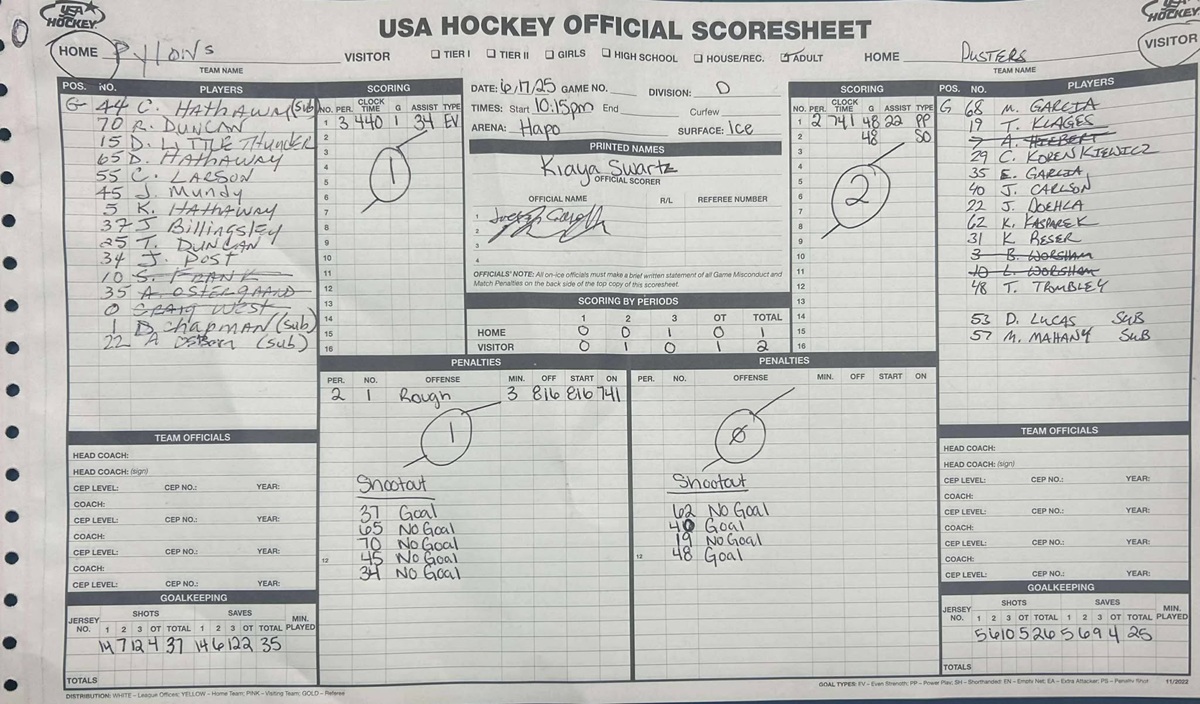 USA HOCKEY
USA HOCKEY OFFICIAL SCORESHEET
HOCKEY
HOME Pylons VISITOR
TEAM NAME
☐ TIER I ☐ TIER II ☐ GIRLS ☐ HIGH SCHOOL ☐ HOUSE/REC. ☑ ADULT
HOME Dusters VISITOR
TEAM NAME
POS. NO. PLAYERS
G 44 C. Hathaway (sub)
70 R. Duncan
15 D. Little Thunder
65 D. Hathaway
55 C. Larson
45 J. Mundy
5 K. Hathaway
37 J Billingsley
25 T. Duncan
34 J. Post
10 S. Frank
35 A. Ostergaard
0 Craig West
1 D. Chapman (sub)
22 A Osborn (sub)
SCORING
NO. PER. CLOCK TIME G ASSIST TYPE
1 3 440 1 34 EV
2
3
4
5
6
7
8
9
10
11
12
13
14
15
16
1
DATE: 6/17/25 GAME NO. DIVISION: D
TIMES: Start 10:15pm End Curfew
ARENA: Hapo SURFACE: Ice
PRINTED NAMES
Kiaya Swartz
OFFICIAL SCORER
OFFICIAL NAME R/L REFEREE NUMBER
1
2
3
4
OFFICIALS' NOTE: All on-ice officials must make a brief written statement of all Game Misconduct and
Match Penalties on the back side of the top copy of this scoresheet.
SCORING BY PERIODS
1 2 3 OT TOTAL
HOME 0 0 1 0 1
VISITOR 0 1 0 1 2
SCORING
NO. PER. CLOCK TIME G ASSIST TYPE
1 2 741 48 22 PP
2 48 SO
3
4
5
6
7
8
9
10
11
12
13
14
15
16
2
POS. NO. PLAYERS
G 68 M. GARCIA
19 T. KLAGES
7 A. HIEBERT
29 C. KORENKIEWICZ
35 E. GARCIA
40 J. CARLSON
22 J. DOEHLA
62 K. KASPAREK
31 K RESER
3 B. WORSHAM
10 L. WORSHAM
48 T. TROMBLEY
53 D. LUCAS SUB
57 M. MAHANY SUB
PENALTIES
PER. NO. OFFENSE MIN. OFF START ON
2 1 Rough 3 816 816 741
1
Shootout
37 Goal
65 No Goal
70 No Goal
45 No Goal
34 No Goal
12
PENALTIES
PER. NO. OFFENSE MIN. OFF START ON
0
Shootout
62 No Goal
40 Goal
19 No Goal
48 Goal
12
TEAM OFFICIALS
HEAD COACH:
HEAD COACH: (sign)
CEP LEVEL: CEP NO.: YEAR:
COACH:
CEP LEVEL: CEP NO.: YEAR:
COACH:
CEP LEVEL: CEP NO.: YEAR:
COACH:
CEP LEVEL: CEP NO.: YEAR:
GOALKEEPING
JERSEY NO. SHOTS SAVES MIN. PLAYED
1 2 3 OT TOTAL 1 2 3 OT TOTAL
14 7 12 4 37 14 6 12 2 35
TOTALS
TEAM OFFICIALS
HEAD COACH:
HEAD COACH: (sign)
CEP LEVEL: CEP NO.: YEAR:
COACH:
CEP LEVEL: CEP NO.: YEAR:
COACH:
CEP LEVEL: CEP NO.: YEAR:
COACH:
CEP LEVEL: CEP NO.: YEAR:
GOALKEEPING
JERSEY NO. SHOTS SAVES MIN. PLAYED
1 2 3 OT TOTAL 1 2 3 OT TOTAL
5 6 10 5 26 5 6 9 4 25
TOTALS
DISTRIBUTION: WHITE – League Offices; YELLOW – Home Team; PINK – Visiting Team; GOLD – Referee
GOAL TYPES: EV – Even Strength; PP – Power Play; SH – Shorthanded; EN – Empty Net; EA – Extra Attacker; PS – Penalty Shot 11/2022